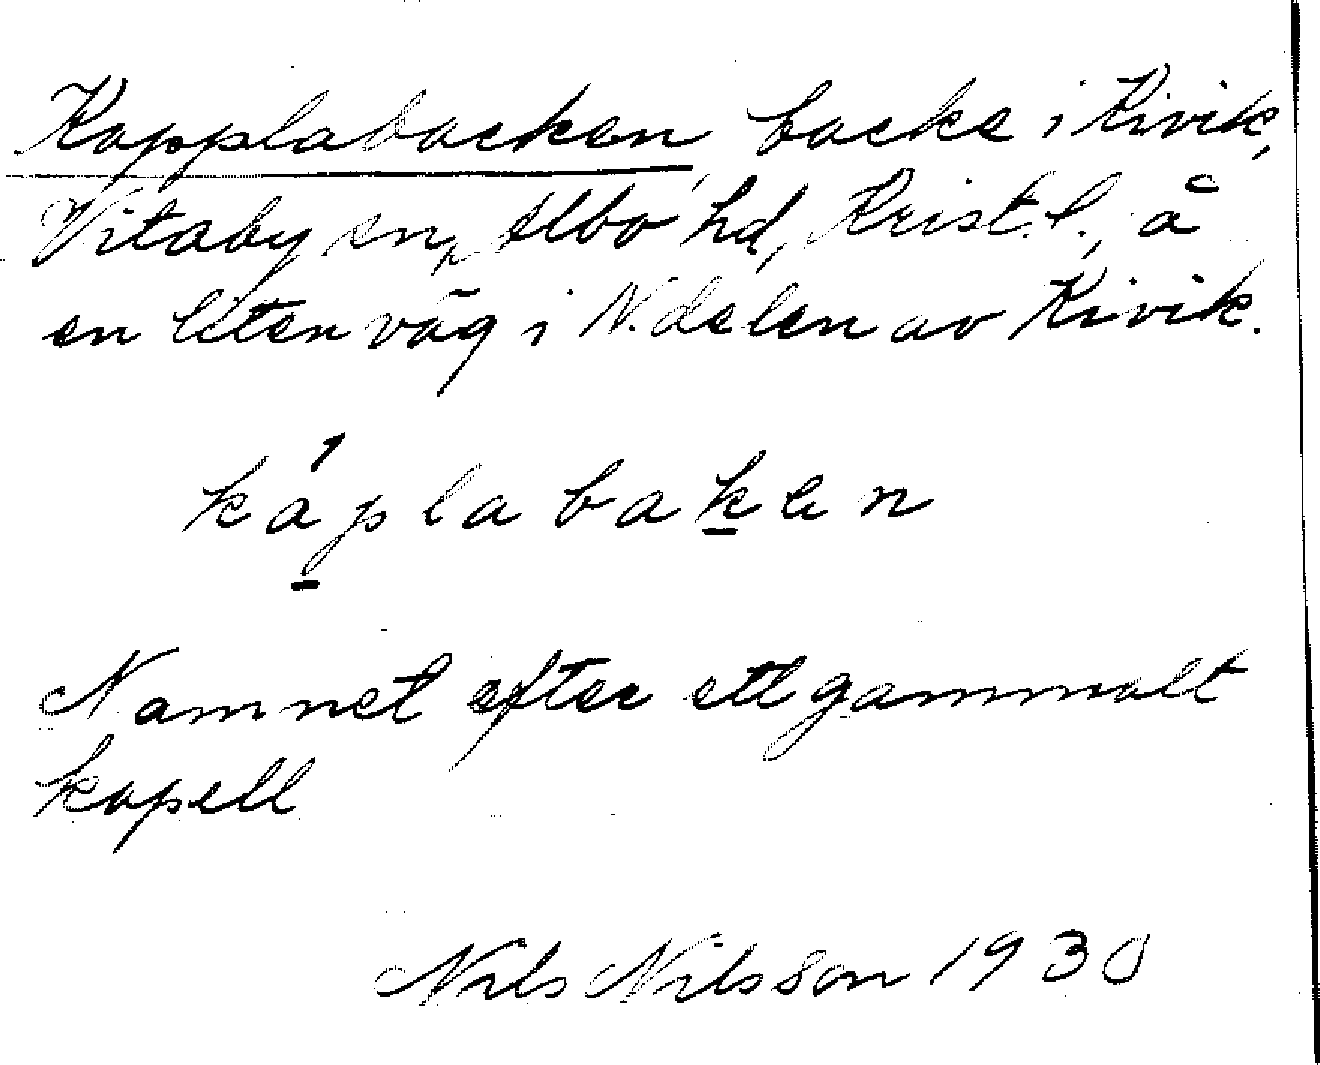 Kapplabacken, backe i Kivik,
Vitaby sn, Albo hd, Krist.l., å
en liten väg i N. delen av Kivik.
káplabaken
Namnet efter ett gammalt
kapell
Nils Nilsson 1930